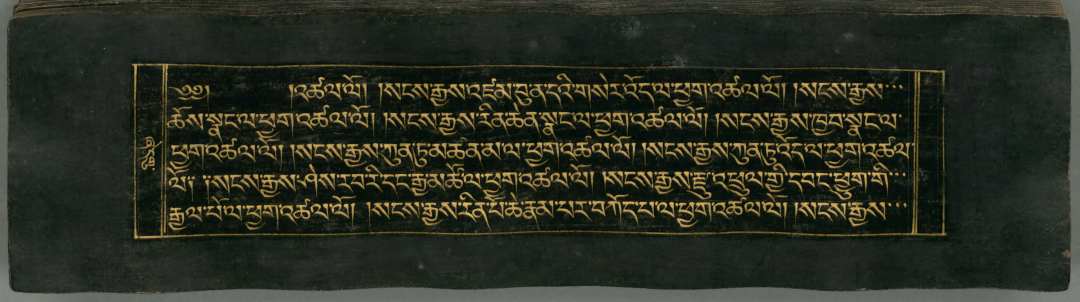 ༄༅། །འཚལ་ལོ། །སངས་རྒྱས་འཛམ་བུན་དའི་གསེར་འོད་ལ་ཕྱག་འཚལ་ལོ། །སངས་རྒྱས་
ཆོས་སྣང་ལ་ཕྱག་འཚལ་ལོ། །སངས་རྒྱས་རིན་ཆེན་སྣང་ལ་ཕྱག་འཚལ་ལོ། །སངས་རྒྱས་ཁྱབ་སྣང་ལ་
ཕྱག་འཚལ་ལོ། །སངས་རྒྱས་ཀུན་ཏུ་མཚན་མ་ལ་ཕྱག་འཚལ་ལོ། །སངས་རྒྱས་ཀུན་ཏུ་འོད་ལ་ཕྱག་འཚལ་
ལོ། །སངས་རྒྱས་ཤེས་རབ་རི་དང་རྒྱ་མཚོ་ལ་ཕྱག་འཚལ་ལོ། །སངས་རྒྱས་རྫུ་འཕྲུལ་གྱི་དབང་ཕྱུག་གི་
རྒྱལ་པོ་ལ་ཕྱག་འཚལ་ལོ། །སངས་རྒྱས་རིན་པོ་ཆེ་རྣམ་པར་བཀོད་པ་ལ་ཕྱག་འཚལ་ལོ། །སངས་རྒྱས་